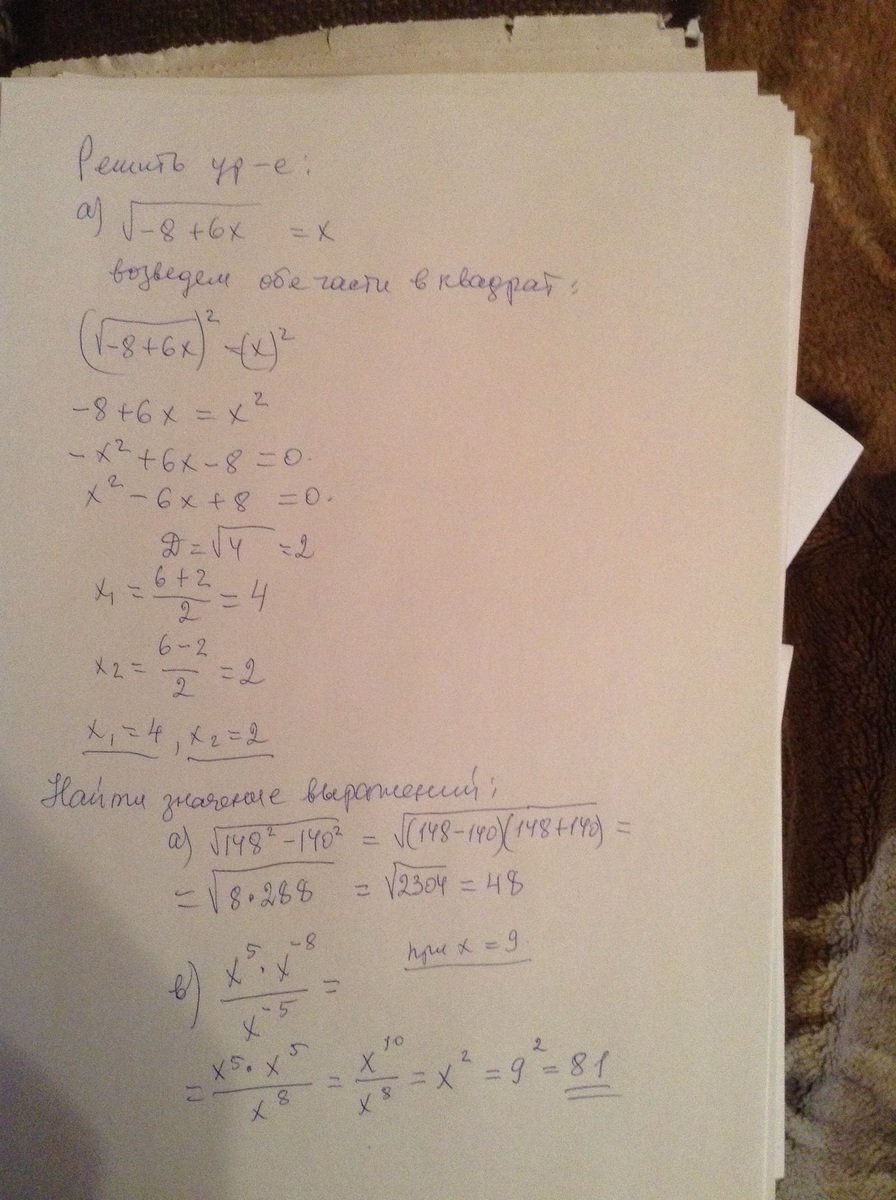 Решить ур-е:
а) √(-8+6x) = x
возведем обе части в квадрат:
(√(-8+6x))² = (x)²
-8+6x = x²
-x²+6x-8=0.
x²-6x+8=0.
Д=√4=2
x₁ = (6+2)/2 = 4
x₂ = (6-2)/2 = 2
x₁=4, x₂=2
Найти значение выражений:
а) √(148²-140²) = √((148-140)(148+140)) =
= √(8·288) = √2304 = 48
в) (x⁵·x⁻⁸)/x⁻⁵ = при x=9
= (x⁵·x⁵)/x⁸ = x¹⁰/x⁸ = x² = 9² = 81